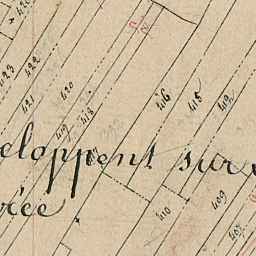 423
422
421
420
419
418
416
415
413
eloppent sur
rée
410
409
407